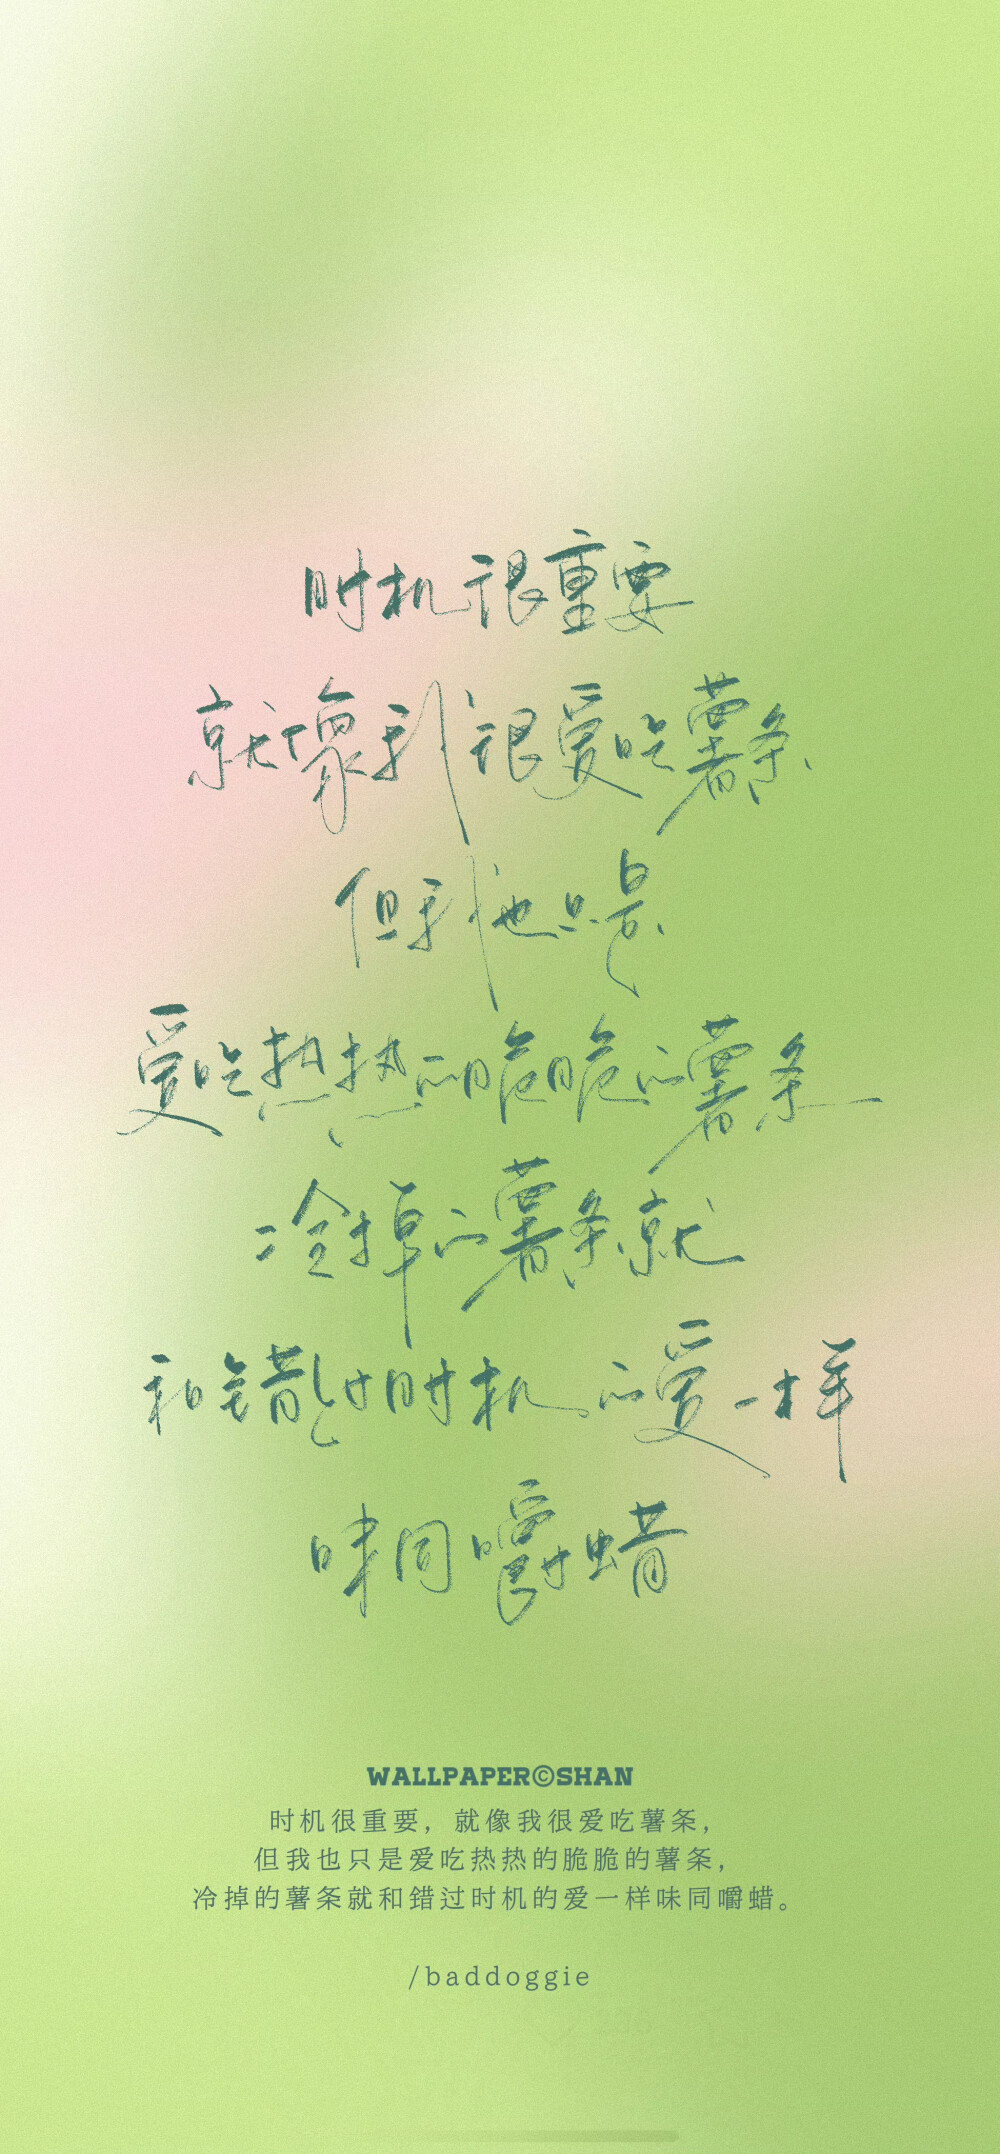 时机很重要
就像我很爱吃薯条
但我也只是
爱吃热热的脆脆的薯条
冷掉的薯条就
和错过时机的爱一样
味同嚼蜡
WALLPAPER©SHAN
时机很重要，就像我很爱吃薯条，
但我也只是爱吃热热的脆脆的薯条，
冷掉的薯条就和错过时机的爱一样味同嚼蜡。
/baddoggie